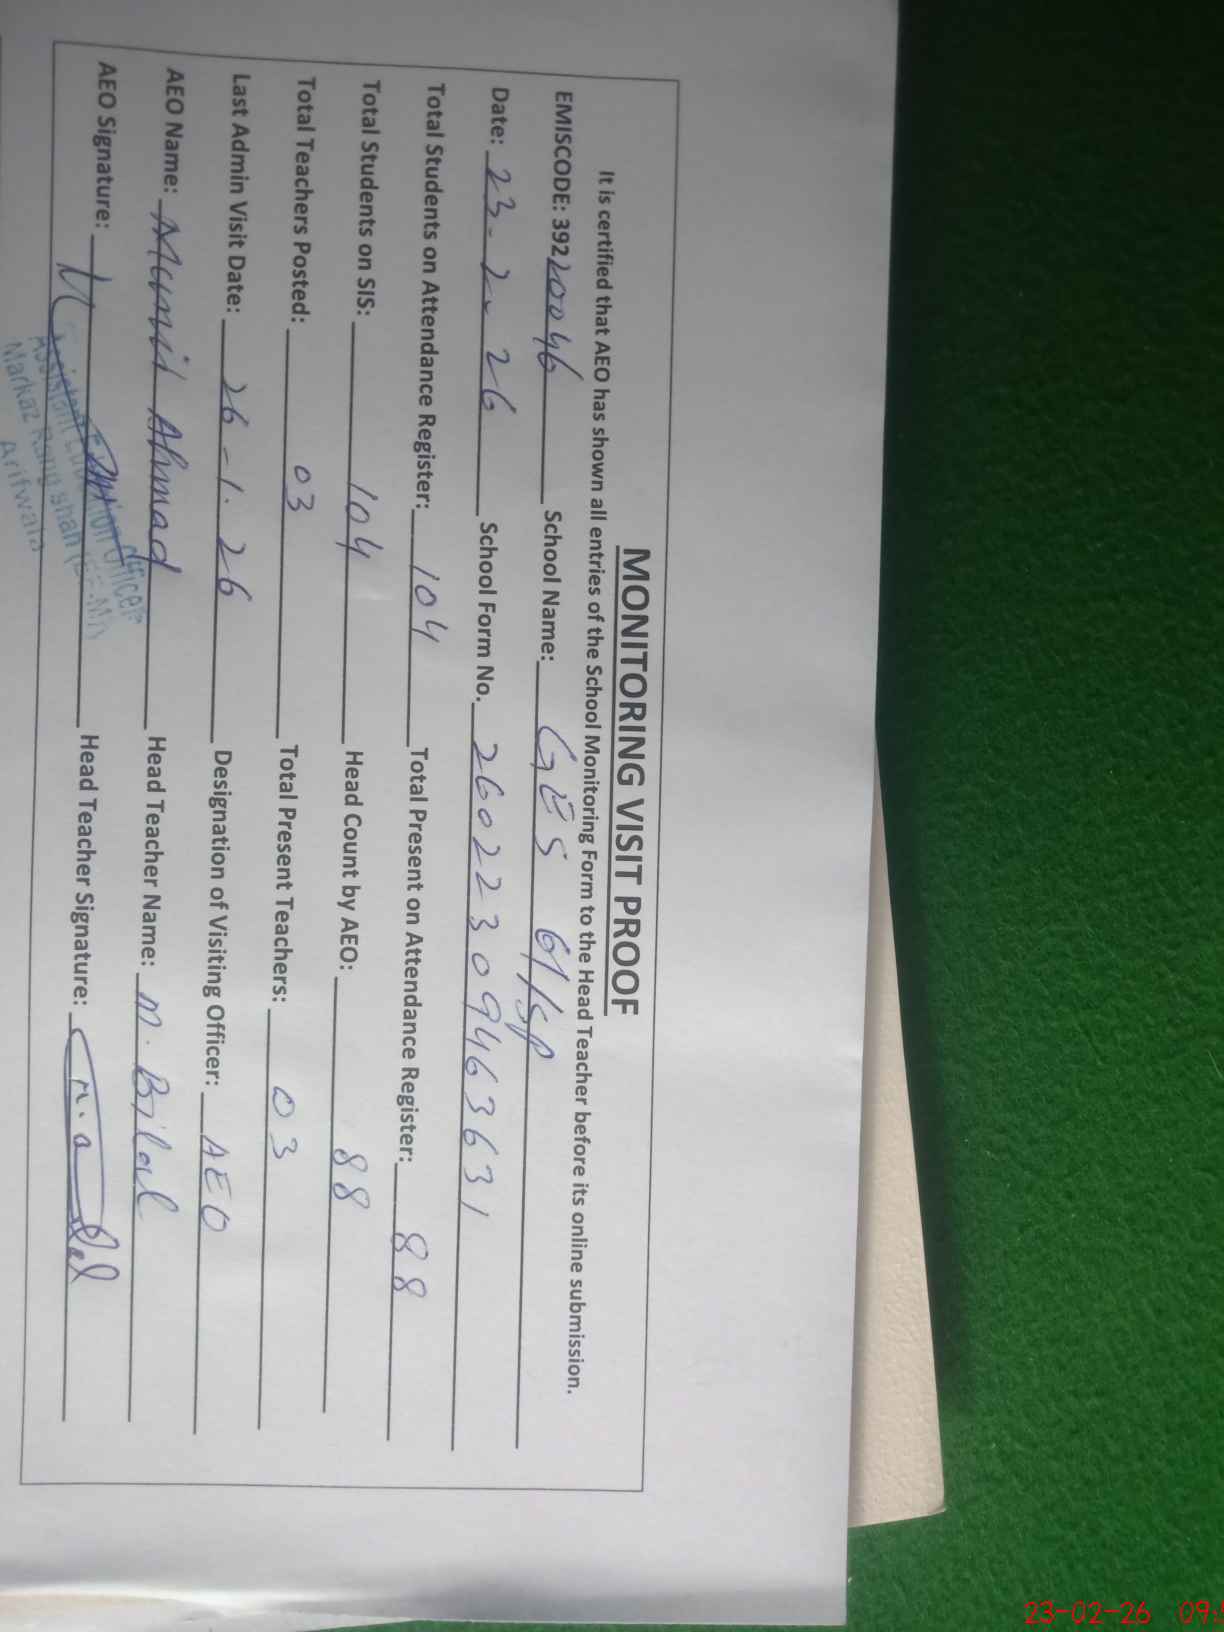 MONITORING VISIT PROOF
It is certified that AEO has shown all entries of the School Monitoring Form to the Head Teacher before its online submission.
EMISCODE: 39220046 School Name: GES 61/SP
Date: 23-2-26 School Form No. 26022309463631
Total Students on Attendance Register: 104 Total Present on Attendance Register: 88
Total Students on SIS: 104 Head Count by AEO: 88
Total Teachers Posted: 03 Total Present Teachers: 03
Last Admin Visit Date: 26-1-26 Designation of Visiting Officer: AEO
AEO Name: Ahmad Head Teacher Name: M. Bilal
AEO Signature: Head Teacher Signature:
Assistant Education Officer
Markaz Rang shah
Arifwala
23-02-26 09: